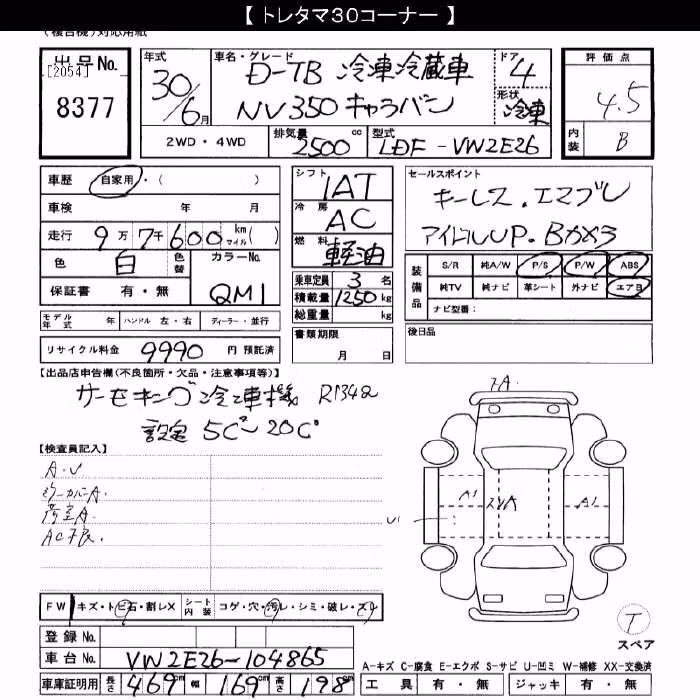 【 トレタマ30コーナー 】
(複合機)対応用紙
出品No.
[2054]
8377
年式
30/6月
車名・グレード
D-TB 冷凍冷蔵車
NV350 キャラバン
ドア
4
形状
冷凍
評価点
4.5
内装
B
2WD・4WD
排気量
2500 cc
型式
LDF-VW2E26
車歴 自家用・( )
車検 年 月
走行 9万 7千 600 km マイル( )
色 白 色替
カラーNo.
QM1
保証書 有・無
モデル年式 年 ハンドル 左・右 ディーラー・並行
リサイクル料金 9990 円 預託済
シフト
IAT
冷房
AC
燃料
軽油
乗車定員 3 名
積載量 1250 kg
総重量 kg
書類期限
月 日
セールスポイント
キーレス.エマブレ
アイドルUP.Bカメラ
装備品
S/R 純A/W P/S P/W ABS
純TV 純ナビ 革シート 外ナビ エアB
ナビ型番:
後日品
【出品店申告欄(不良箇所・欠品・注意事項等)】
サーモキング冷凍機 R134a
設定 5C°~20C°
【検査員記入】
A・U
ミラーカバーA.
荷室A.
AC不良.
FW キズ・トビ石・割レX シート内装 コゲ・穴・汚レ・シミ・破レ・スレ
登録 No.
車台 No. VW2E26-104865
車庫証明用 長さ 469cm 幅 169cm 高さ 198cm
A
A1
A1
U1
T
スペア
A-キズ C-腐食 E-エクボ S-サビ U-凹ミ W-補修 XX-交換済
工具 有・無 ジャッキ 有・無